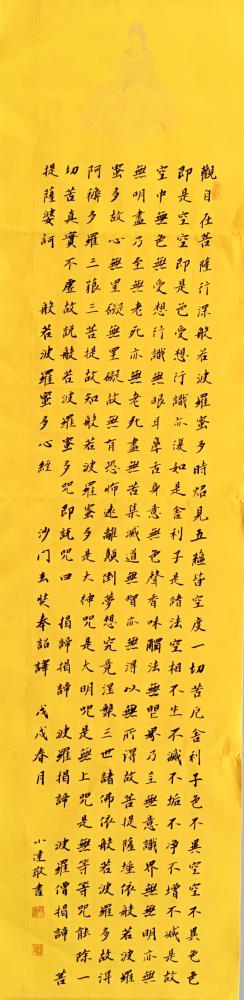 觀自在菩薩行深般若波羅蜜多時照見五蘊皆空度一切苦厄舍利子色不異空空不異色色
即是空空即是色受想行識亦復如是舍利子是諸法空相不生不滅不垢不淨不增不減是故
空中無色無受想行識無眼耳鼻舌身意無色聲香味觸法無眼界乃至無意識界無無明亦無
無明盡乃至無老死亦無老死盡無苦集滅道無智亦無得以無所得故菩提薩埵依般若波羅
蜜多故心無罣礙無罣礙故無有恐怖遠離顛倒夢想究竟涅槃三世諸佛依般若波羅蜜多故得
阿耨多羅三藐三菩提故知般若波羅蜜多是大神咒是大明咒是無上咒是無等等咒能除一
切苦真實不虛故說般若波羅蜜多咒即說咒曰 揭諦揭諦 波羅揭諦 波羅僧揭諦 菩
提薩婆訶 般若波羅蜜多心經 沙門玄奘奉詔譯 戊戌春月 小達敬書